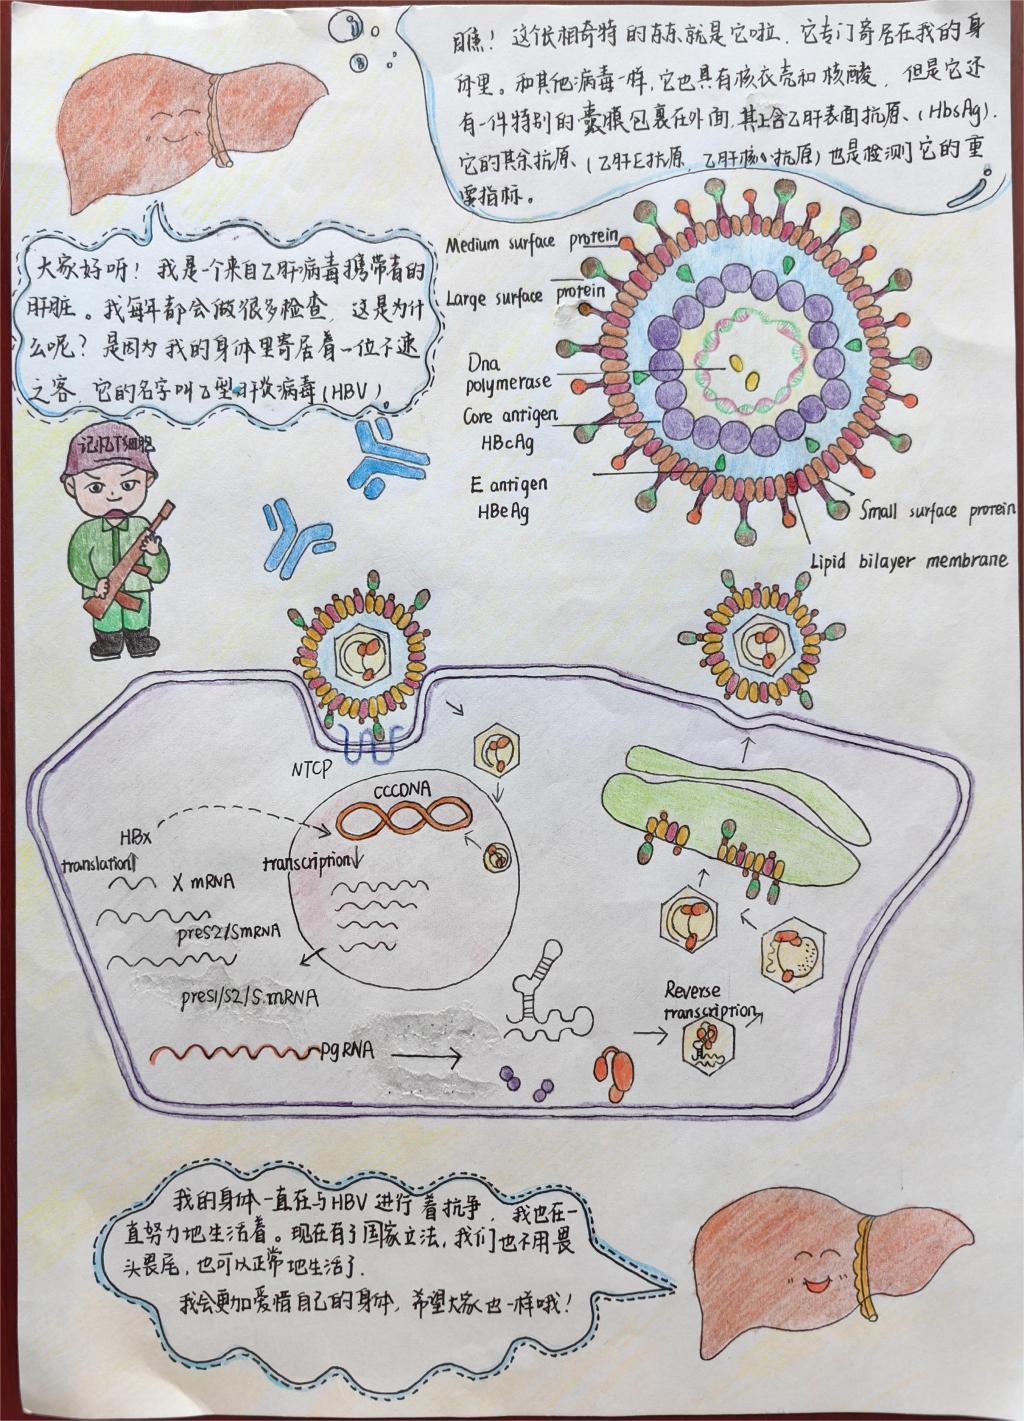 瞧！这个长相奇特的东东就是它啦，它专门寄居在我的身
体里。和其他病毒一样，它也具有核衣壳和核酸，但是它还
有一件特别的囊膜包裹在外面，其上含乙肝表面抗原、(HbsAg).
它的其余抗原、(乙肝E抗原，乙肝核心抗原)也是检测它的重
要指标。
大家好呀！我是一个来自乙肝病毒携带者的
肝脏。我每年都会做很多检查，这是为什
么呢？是因为我的身体里寄居着一位不速
之客，它的名字叫乙型肝炎病毒(HBV)。
Medium surface protein
Large surface protein
Dna
polymerase
Core antigen
HBcAg
E antigen
HBeAg
Small surface protein
Lipid bilayer membrane
记忆T细胞
NTCP
CCCDNA
HBx
translation
transcription
X mRNA
preS2/SmRNA
preS1/S2/S.mRNA
PgRNA
Reverse
transcription
我的身体一直在与HBV进行着抗争，我也在一
直努力地生活着。现在有了国家立法，我们也不用畏
头畏尾，也可以正常地生活了.
我会更加爱惜自己的身体，希望大家也一样哦！